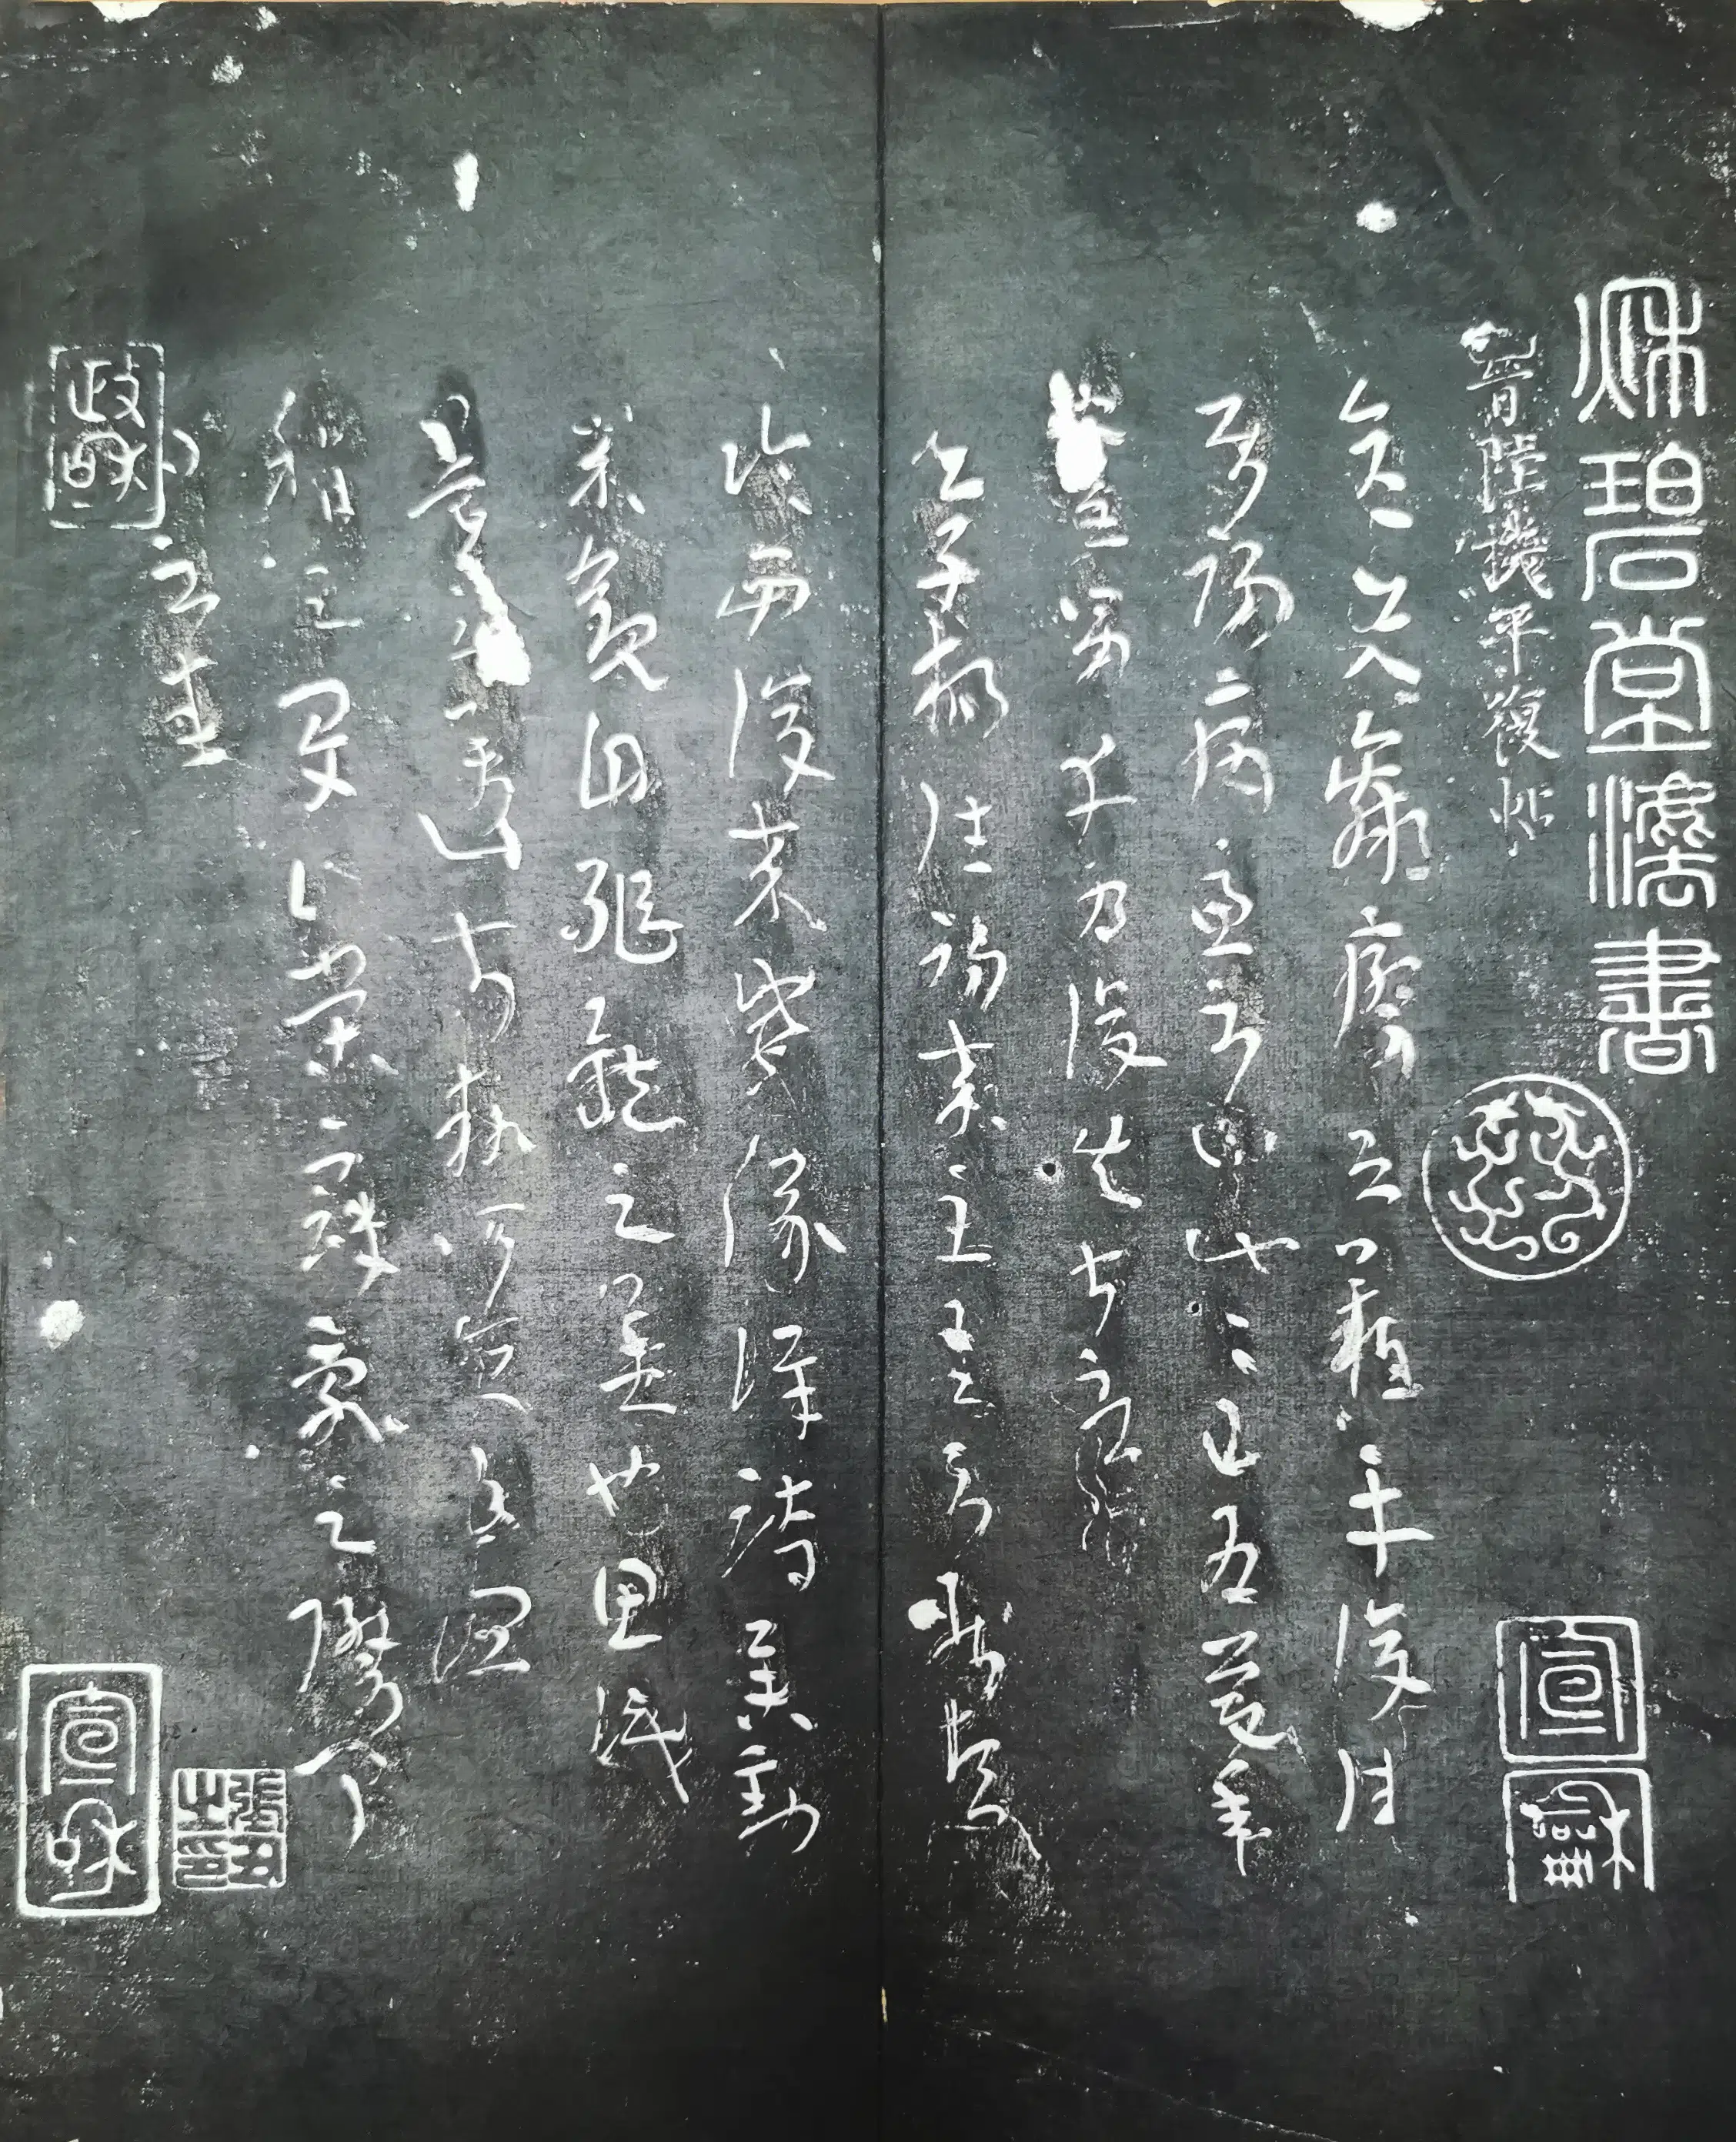 秋碧堂法書
晉陸機平復帖
宣
龢
彦先羸瘵恐難平復往
屬初病慮不止此此已為慶承
使唯男幸為復失前憂耳
吳子楊往初來主吾不能盡
臨西復來威儀詳跱舉動
成觀自軀體之美也思識
量之邁前執所恒有宜
稱之夏伯榮寇亂之際聞
問不悉
政和
宣和